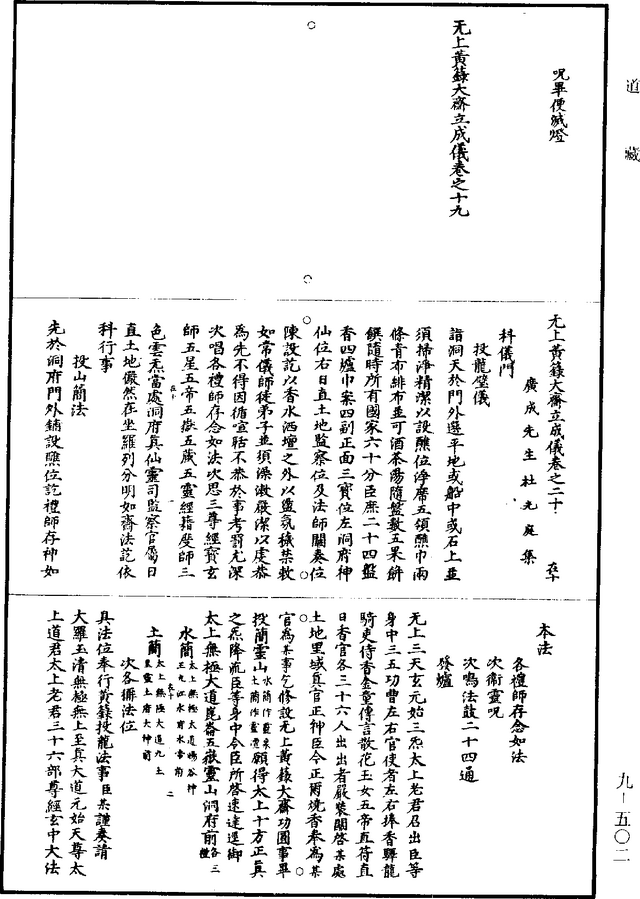 道藏
呪畢便滅燈
无上黃籙大齋立成儀卷之十九
无上黃籙大齋立成儀卷之二十
在十
廣成先生杜光庭集
科儀門
投龍璧儀
詣洞天於門外選平地或船中或石上並
須掃淨精潔以設醮位淨席五領醮巾兩
條青布緋布並可酒茶湯隨盤數五果餅
饌隨時所有國家六十分臣庶二十四盤
香四爐巾案四副正面三寶位左洞府神
仙位右日直土地監察位及法師關奏位
陳設訖以香水洒壇之外以盪氛穢禁敕
如常儀師徒弟子並須澡漱嚴潔以虔恭
為先不得因循喧聒不恭於事考罰尤深
次唱各禮師存念如法次思三尊經寶玄
師五星五帝五嶽五藏五靈經籍度師三
在十
色雲炁當處洞府真仙靈司監察官屬日
直土地儼然在坐羅列分明如齋法訖依
科行事
投山簡法
先於洞府門外鋪設醮位訖禮師存神如
本法
各禮師存念如法
次衛靈呪
次鳴法鼓二十四通
發爐
无上三天玄元始三炁太上老君召出臣等
身中三五功曹左右官使者左右捧香驛龍
騎吏侍香金童傳言散花玉女五帝直符直
日香官各三十六人出出者嚴裝關啓某處
土地里域真官正神臣今正爾燒香奉為某
官為某事乞修設无上黃籙大齋功圓事畢
投簡靈山水簡作靈泉土簡作靈壇願得太上十方正真
之炁降流臣等身中令臣所啓速達逕御
太上無極大道崑崙五嶽靈山洞府前各三禮
水簡太上無極大道暘谷神王九江水府水帝前
在十 二
土簡太上無極大道九土皇靈土府大神前
次各稱法位
具法位奉行黃籙投龍法事臣某謹奏請
大羅玉清無極無上至真大道元始天尊太
上道君太上老君三十六部尊經玄中大法
九－五〇二